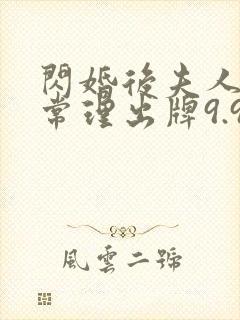 閃婚後夫人
常理出牌9.9
風雲二號